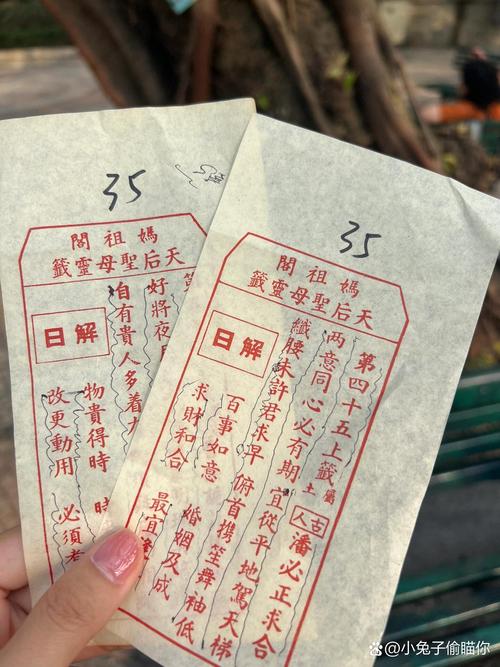 35
媽祖閣
天后聖母靈籤
好將夜
自有貴人多着
解曰
物貴得時 時
改更動用 必須
35
媽祖閣
天后聖母靈籤
第四十五上籤 屬土 古人 潘必正求合
两意同心必有期 宜從平地駕天梯
纖腰未許君求早 俯首携笙舞袖低
解曰
百事如意 婚姻及成
求財和合 最宜
@小兔子偷瞄你